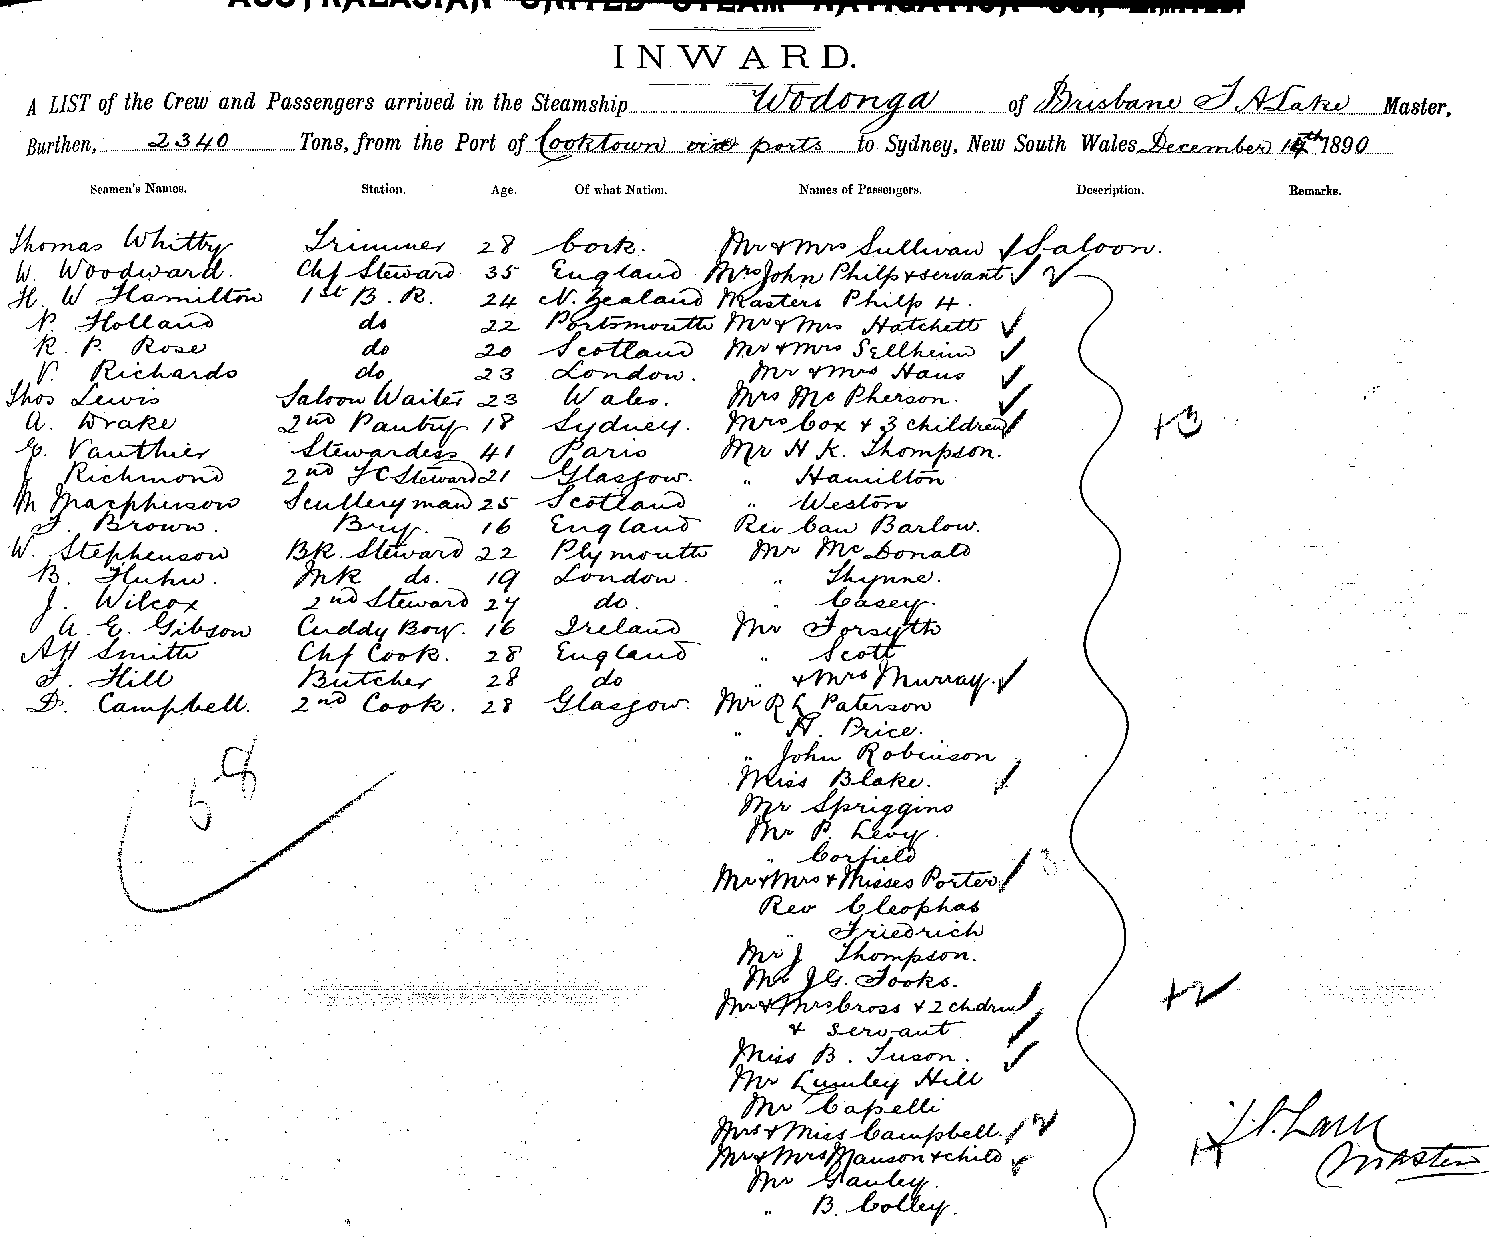 AUSTRALASIAN UNITED STEAM NAVIGATION CO., LIMITED.
INWARD.
A LIST of the Crew and Passengers arrived in the Steamship Wodonga of Brisbane T A Lake Master,
Burthen, 2340 Tons, from the Port of Cooktown via ports to Sydney, New South Wales December 14th 1890
Seamen's Names. Station. Age. Of what Nation. Names of Passengers. Description. Remarks.
Thomas Whitby Trimmer 28 Cork. Mr & Mrs Sullivan Saloon.
W. Woodward. Chf Steward 35 England Mrs John Philp & servant 2
H. W Hamilton 1st B. R. 24 N. Zealand Masters Philp 4.
P. Holland do 22 Portsmouth Mr & Mrs Hatchett
R. P. Rose do 20 Scotland Mr & Mrs Sellheim
V. Richards do 23 London. Mr & Mrs Haus
Thos Lewis Saloon Waiter 23 Wales. Mrs McPherson.
A. Drake 2nd Pantry 18 Sydney. Mrs Cox & 3 children +3
E. Vauthier Stewardess 41 Paris Mr H K. Thompson.
J Richmond 2nd FC Steward 21 Glasgow. " Hamilton
M Macpherson Sculleryman 25 Scotland " Weston
F. Brown. Bry. 16 England Rev Can Barlow.
W. Stephenson BR. Steward 22 Plymouth Mr McDonald
B. MK do. 19 London. " Thynne.
J. Wilcox 2nd Steward 24 do. " Casey.
A. E. Gibson Cuddy Boy. 16 Ireland Mr Forsyth
AH Smith Chf Cook. 28 England " Scott
F. Hill Butcher 28 do " & Mrs Murray.
D. Campbell. 2nd Cook. 28 Glasgow. Mr R L Paterson
" H. Price.
58 " John Robinson
Miss Blake.
Mr Spriggins
Mr P. Levy.
" Corfield
Mr & Mrs & Misses Porter 3
Rev Cleophas
" Friedrich
Mr J Thompson.
Mr J G. Fooks.
Mr & Mrs Cross & 2 chdren +2
& servant
Miss B. Tuson.
Mr Lumley Hill
Mr Capelli
Mrs & Miss Campbell. 2
Mr & Mrs Manson & child
Master
Mr Ganley.
" B. Colley.